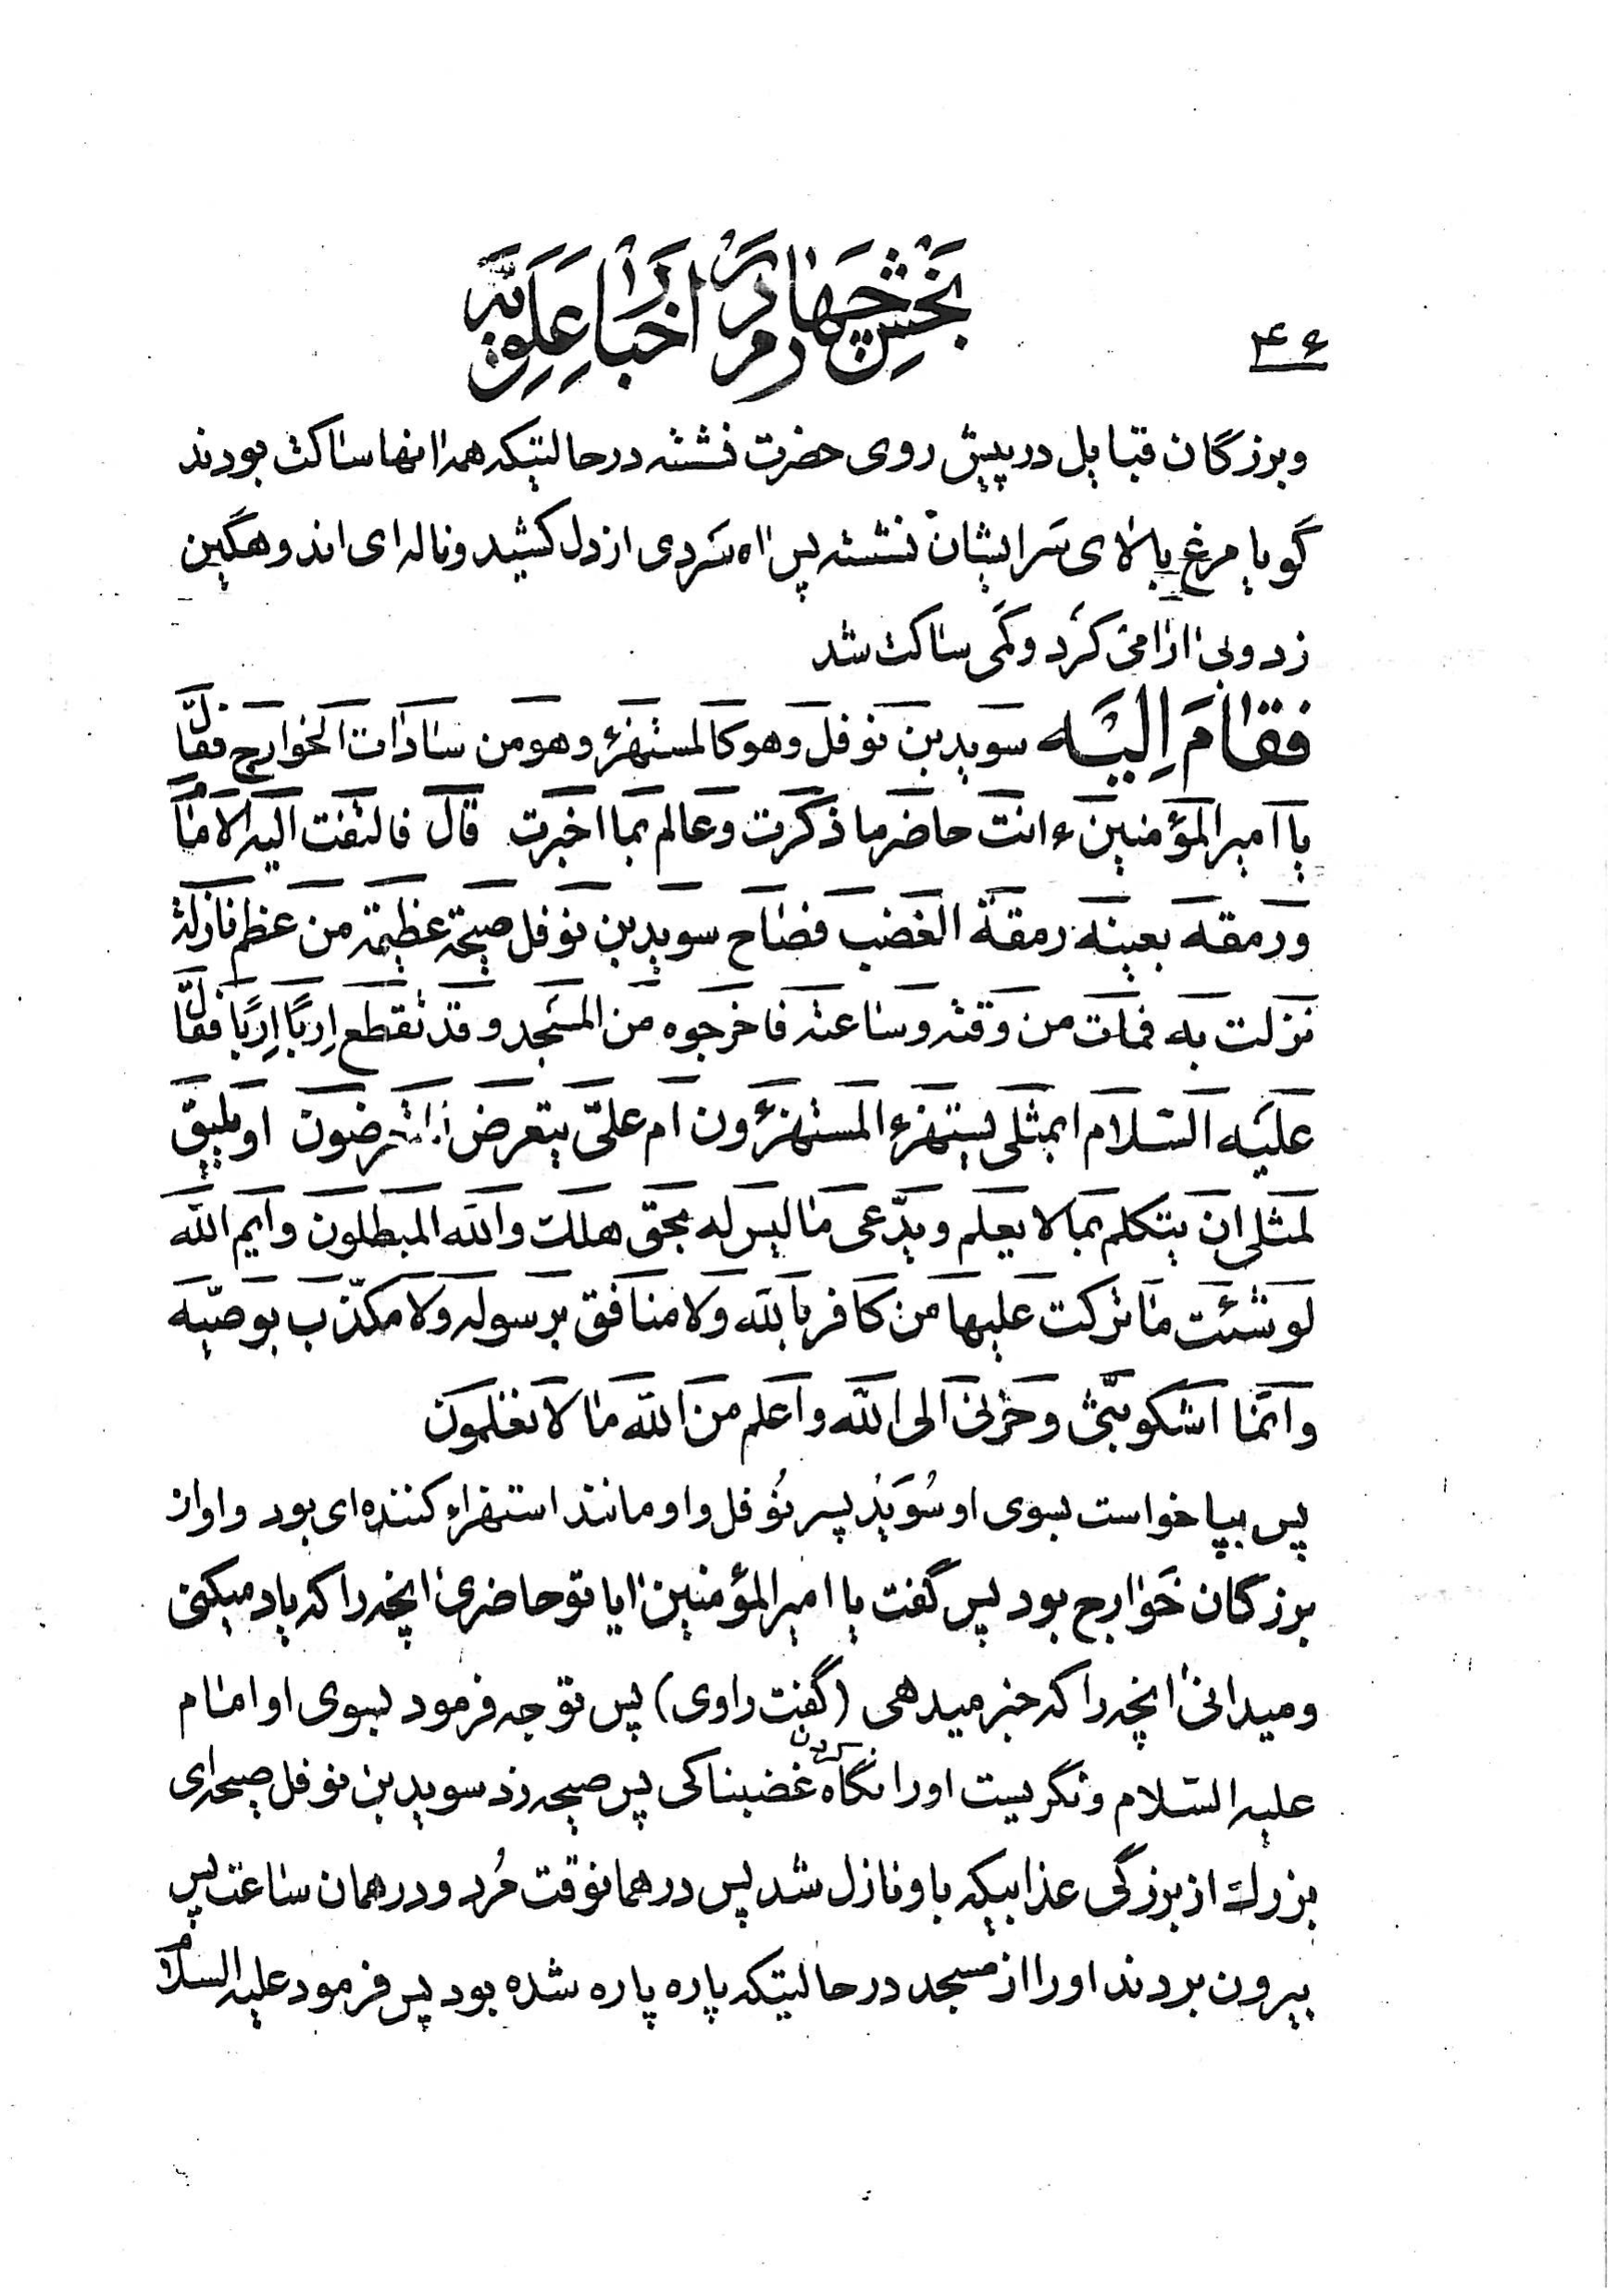 ۴۶
بخش چهارم در اخبار علویّه
و بزرگان قبایل در پیش روی حضرت نشسته در حالتیکه همه انها ساکت بودند
گویا مرغ بالای سر ایشان نشسته پس اه سردی از دل کشید و ناله ای اندوهگین
زد و بی ارامی کرد و کمی ساکت شد
فقام الیه سوید بن نوفل و هو کالمستهزء و هو من سادات الخوارج فقال
یا امیر المؤمنین ءانت حاضر ما ذکرت و عالم بما اخبرت قال فالتفت الیه الامام
و رمقه بعینه رمقة الغضب فصاح سوید بن نوفل صیحة عظیمة من عظم نازلة
نزلت به فمات من وقته و ساعته فاخرجوه من المسجد و قد تقطع اِربًا اِربًا فقال
علیه السّلام ابمثلی یستهزء المستهزؤن ام علیّ یتعرض المتعرضون او یلیق
لمثلی ان یتکلم بما لا یعلم و یدّعی ما لیس له بحق هلک و الله المبطلون و ایم الله
لو شئت ما ترکت علیها من کافر بالله و لا منافق برسوله و لا مکذّب بوصیّه
و انّما اشکو بثّی و حزنی الی الله و اعلم من الله ما لا تعلمون
پس بپا خواست بسوی او سُوَید پسر نَوفل و او مانند استهزاء کننده ای بود و او از
بزرگان خوارج بود پس گفت یا امیر المؤمنین ایا تو حاضری انچه را که یاد میکنی
و میدانی انچه را که خبر میدهی (گفت راوی) پس توجه فرمود بسوی او امام
علیه السّلام و نگریست او را نگاه کردن غضبناکی پس صیحه زد سوید بن نوفل صیحه ای
بزرگ از بزرگی عذابیکه باو نازل شد پس در همانوقت مُرد و در همان ساعت پس
بیرون بردند او را از مسجد در حالتیکه پاره پاره شده بود پس فرمود علیه السلام